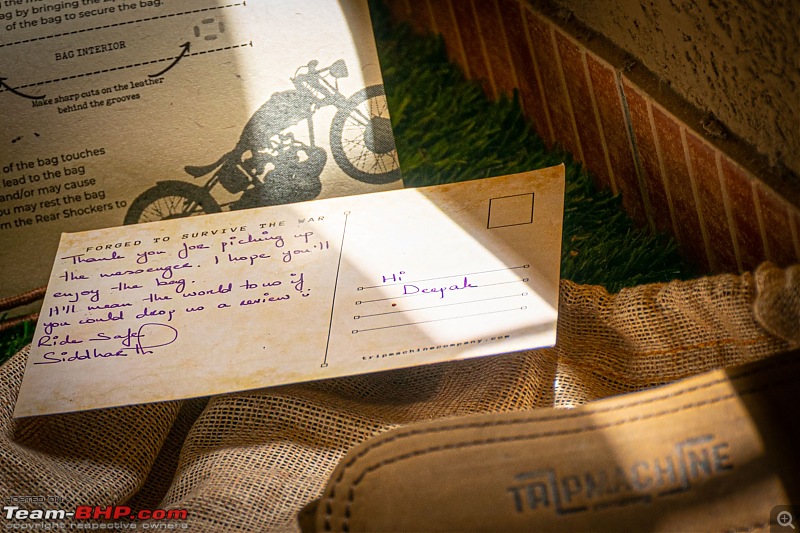 ag by bringing the
of the bag to secure the bag.
BAG INTERIOR
Make sharp cuts on the leather
behind the grooves
of the bag touches
lead to the bag
and/or may cause
you may rest the bag
m the Rear Shockers to
FORGED TO SURVIVE THE WAR
Thank you for picking up
the messenger. I hope you'll
enjoy the bag.
It'll mean the world to us if
you could drop us a review :)
Ride Safe
Siddharth
Hi
Deepak
tripmachinecompany.com
TRIPMACHINE
HOSTED ON
Team-BHP.com
copyright respective owners